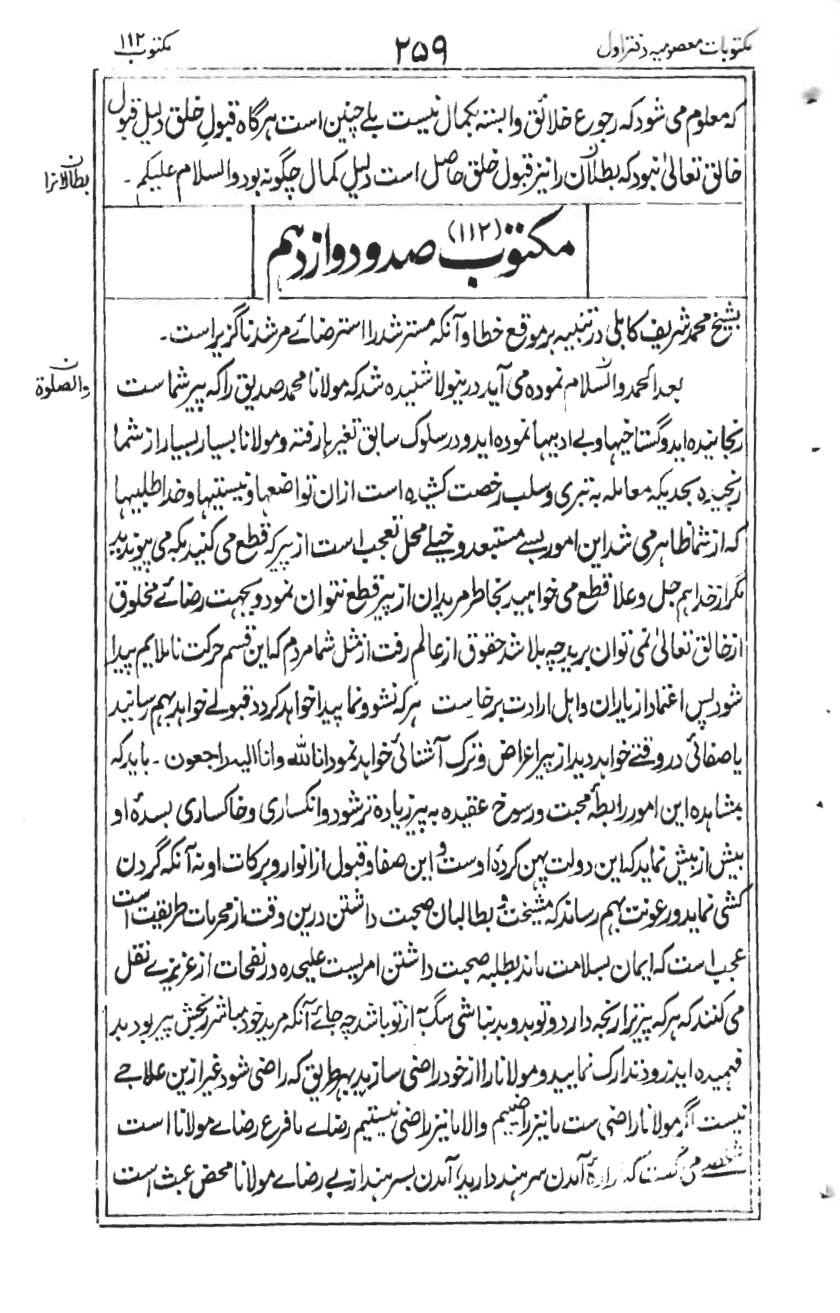 مکتوبات معصومیہ دفتر اول
۲۵۹
مکتوب ۱۱۲
کہ معلوم می شود کہ رجوع خلائق وابستہ بکمال نیست بلے چنین است ہرگاہ قبول خلق دلیل قبول
خالق تعالیٰ نبود کہ بطلان را نیز قبول خلق حاصل است دلیل کمال چگونہ بود والسلام علیکم ۔
ن بطالانرا
مکتوب (۱۱۲) صد و دوازدہم
بشیخ محمد شریف کابلی در تنبیہ بر موقع خطا و آنکہ مسترشد را استرضائے مرشد ناگزیر است ۔
بعد الحمد والسلام نمودہ می آید درینولا شنیدہ شد کہ مولانا محمد صدیق را کہ پیر شماست
ن والصلوۃ
رنجانیدہ اید و گستاخیہا و بے ادبیہا نمودہ اید و در سلوک سابق تغیرہا رفتہ و مولانا بسیار بسیار از شما
رنجیدہ بحدیکہ معاملہ بہ تبری و سلب رخصت کشیدہ است ازان تواضعہا و نیستیہا و خدا طلبیہا
کہ از شما ظاہر می شد این امور بسے مستبعد و خیلے محل تعجب است از پیر کہ قطع می کنید بکہ می پیوندید
مگر از خدا ہم جل و علا قطع می خواہید بخاطر مریدان از پیر قطع نتوان نمود و بجہت رضائے مخلوق
از خالق تعالیٰ نمی توان برید چہ بلا شد حقوق از عالم رفت از مثل شما مردم کہ این قسم حرکت ناملایم پیدا
شود پس اعتماد از یاران و اہل ارادت برخاست ہر کہ نشو و نما پیدا خواہد کرد و قبولے خواہد بہم رسانید
یا صفائی در وقتے خواہد دید از پیر اعراض و ترک آشنائی خواہد نمود انا للہ وانا الیہ راجعون ۔ باید کہ
بمشاہدہ این امور رابطۂ محبت و رسوخ عقیدہ بہ پیر زیادہ تر شود و انکساری و خاکساری بسدۂ او
بیش از بیش نماید کہ این دولت پہن کردۂ اوست و این صفا و قبول از انوار و برکات او نہ آنکہ گردن
کشی نماید و رعونت بہم رساند کہ مشیخت و بطالبان صحبت داشتن درین وقت از محرمات طریقت است
عجب است کہ ایمان بسلامت ماند بطلبہ صحبت داشتن امریست علیحدہ در نفحات از عزیزے نقل
می کنند کہ ہر کہ پیر ترا رنجہ دارد و تو بدو بد نباشی سگ بہ از تو باشد چہ جائے آنکہ مرید خود مباشر رنجش پیر بود بد
فہمیدہ اید زود تدارک نمایید و مولانا را از خود راضی سازید بہر طریق کہ راضی شود غیر ازین علاجے
نیست اگر مولانا راضی ست ما نیز راضییم والا ما نیز راضی نیستیم رضاے ما فرع رضاے مولانا است
شخصے می گفت کہ ارادۂ آمدن سرہند دارید آمدن بسرہند از بے رضاے مولانا محض عبث است